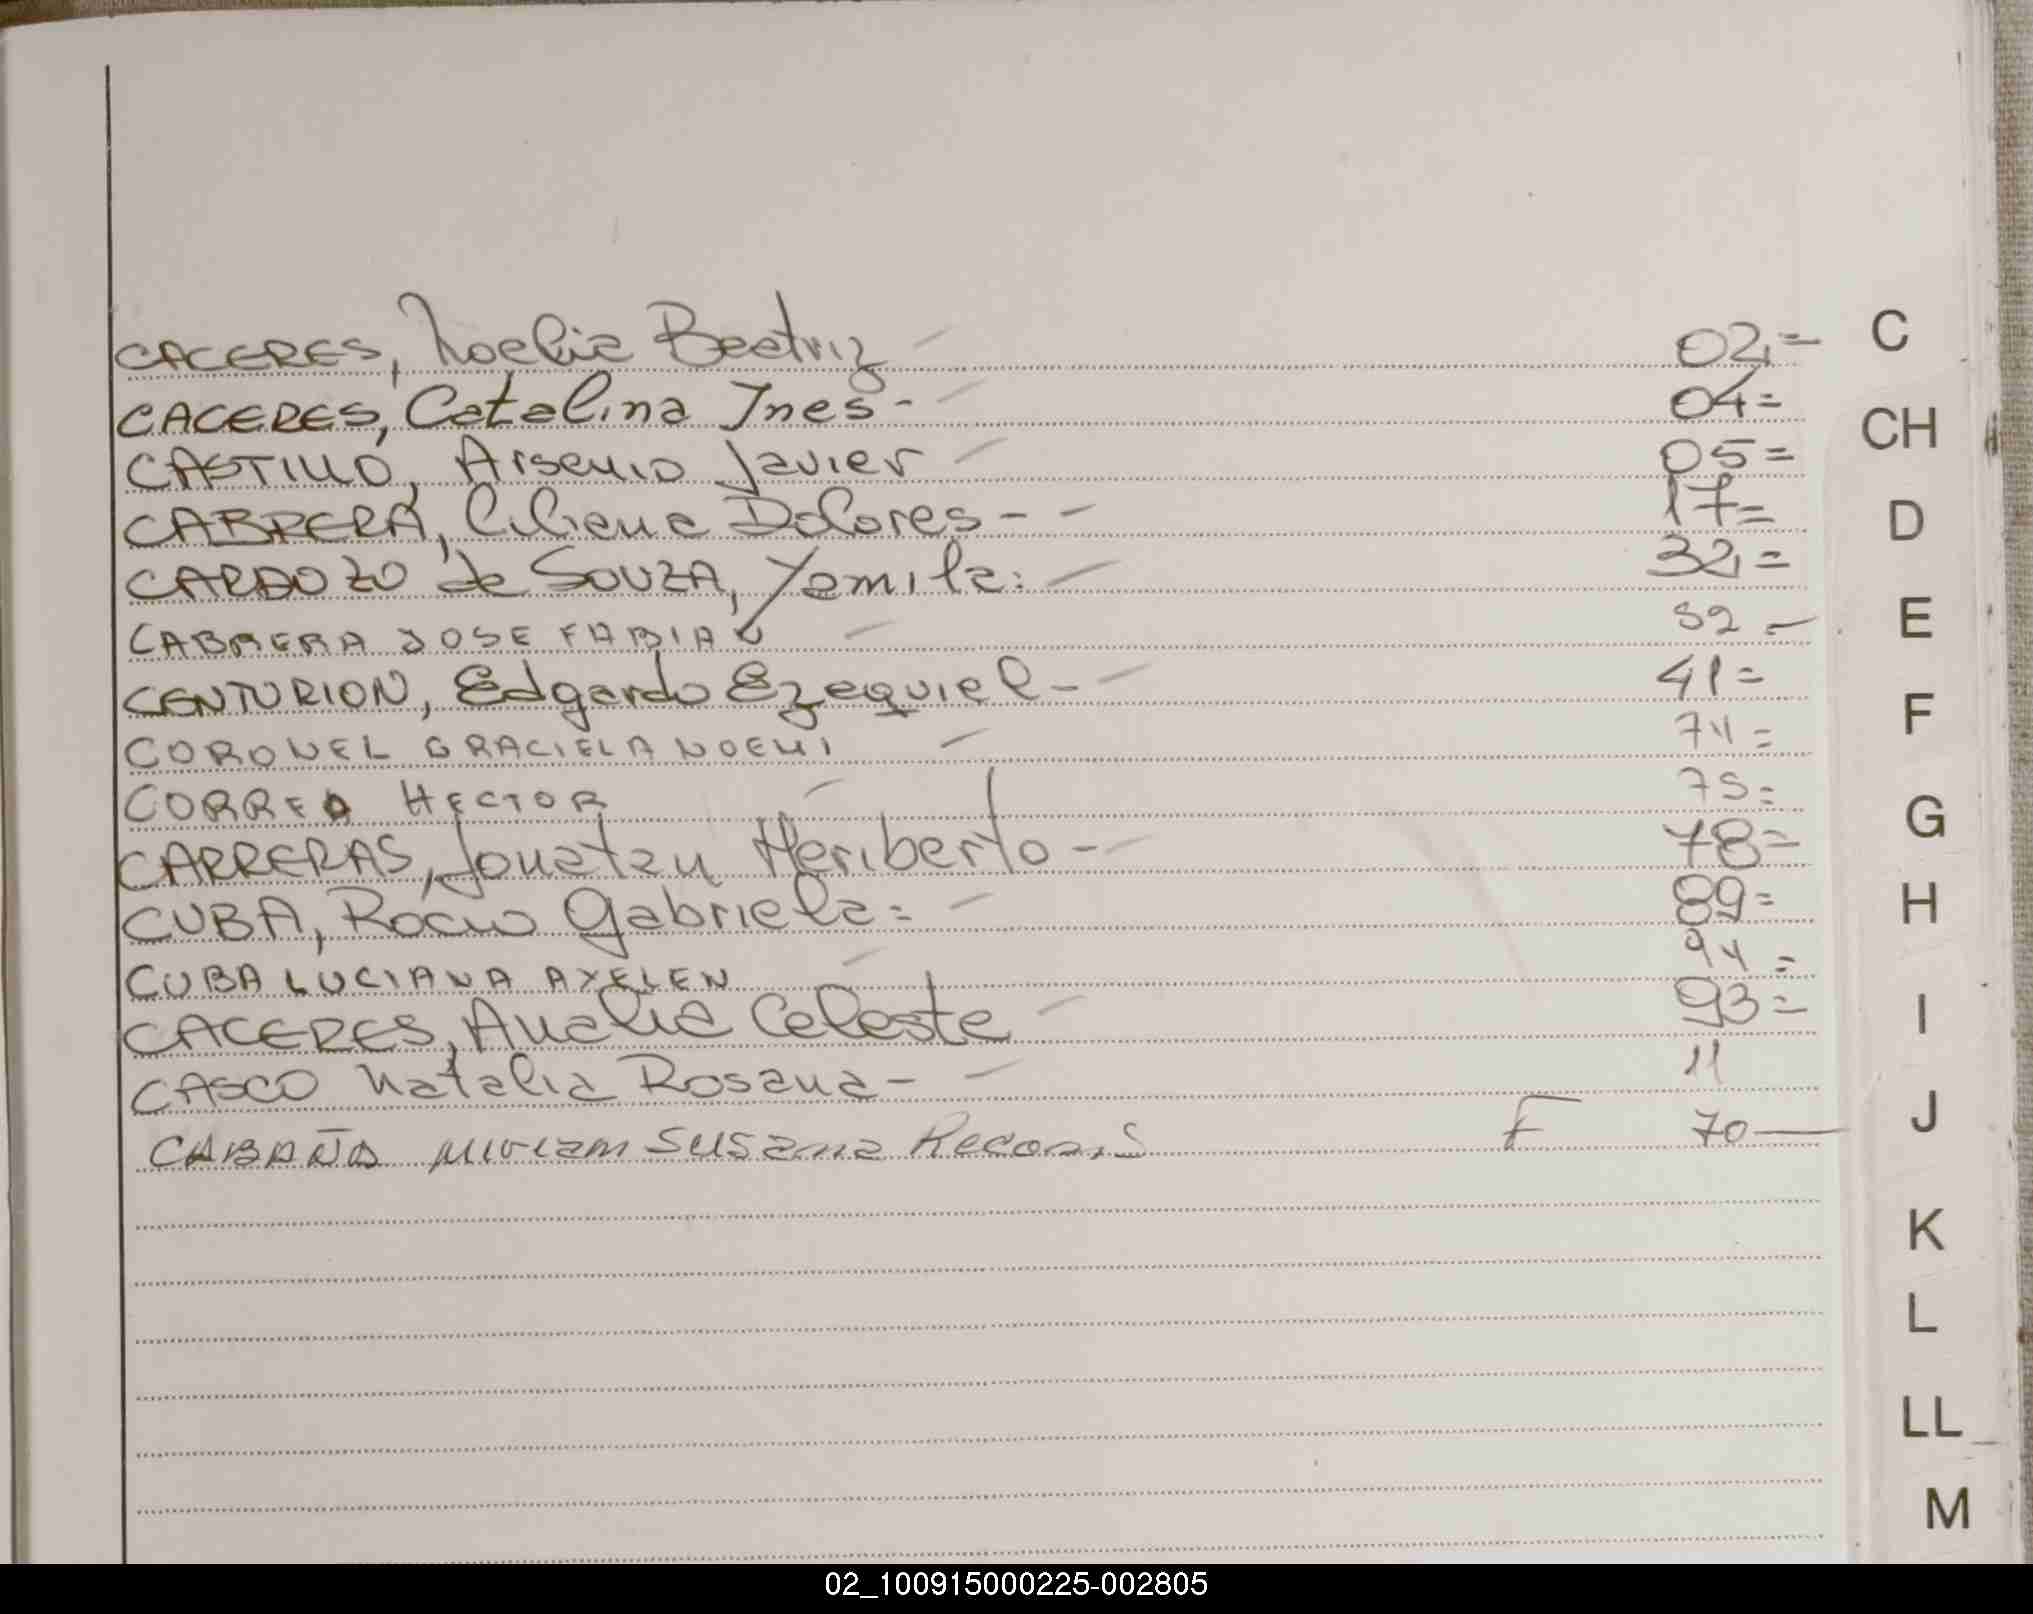 CACERES, Noelia Beatriz 02=
CACERES, Catalina Ines- 04=
CASTILLO, Arsenio Javier 05=
CABRERA, Liliana Dolores- - 17=
CARDOZO de SOUZA, Yamila: 32=
CABRERA JOSE FABIAN 52 -
CENTURION, Edgardo Ezequiel- 41=
CORONEL GRACIELA NOEMI 74=
CORREA HECTOR 75=
CARRERAS, Jonatan Heriberto- 78=
CUBA, Rocio Gabriela= 89=
CUBA LUCIANA AXELEN 94=
CACERES, Analia Celeste 93=
CASCO Natalia Rosana- 11
CABAÑA Miriam Susana F 70
C
CH
D
E
F
G
H
I
J
K
L
LL
M
02_100915000225-002805